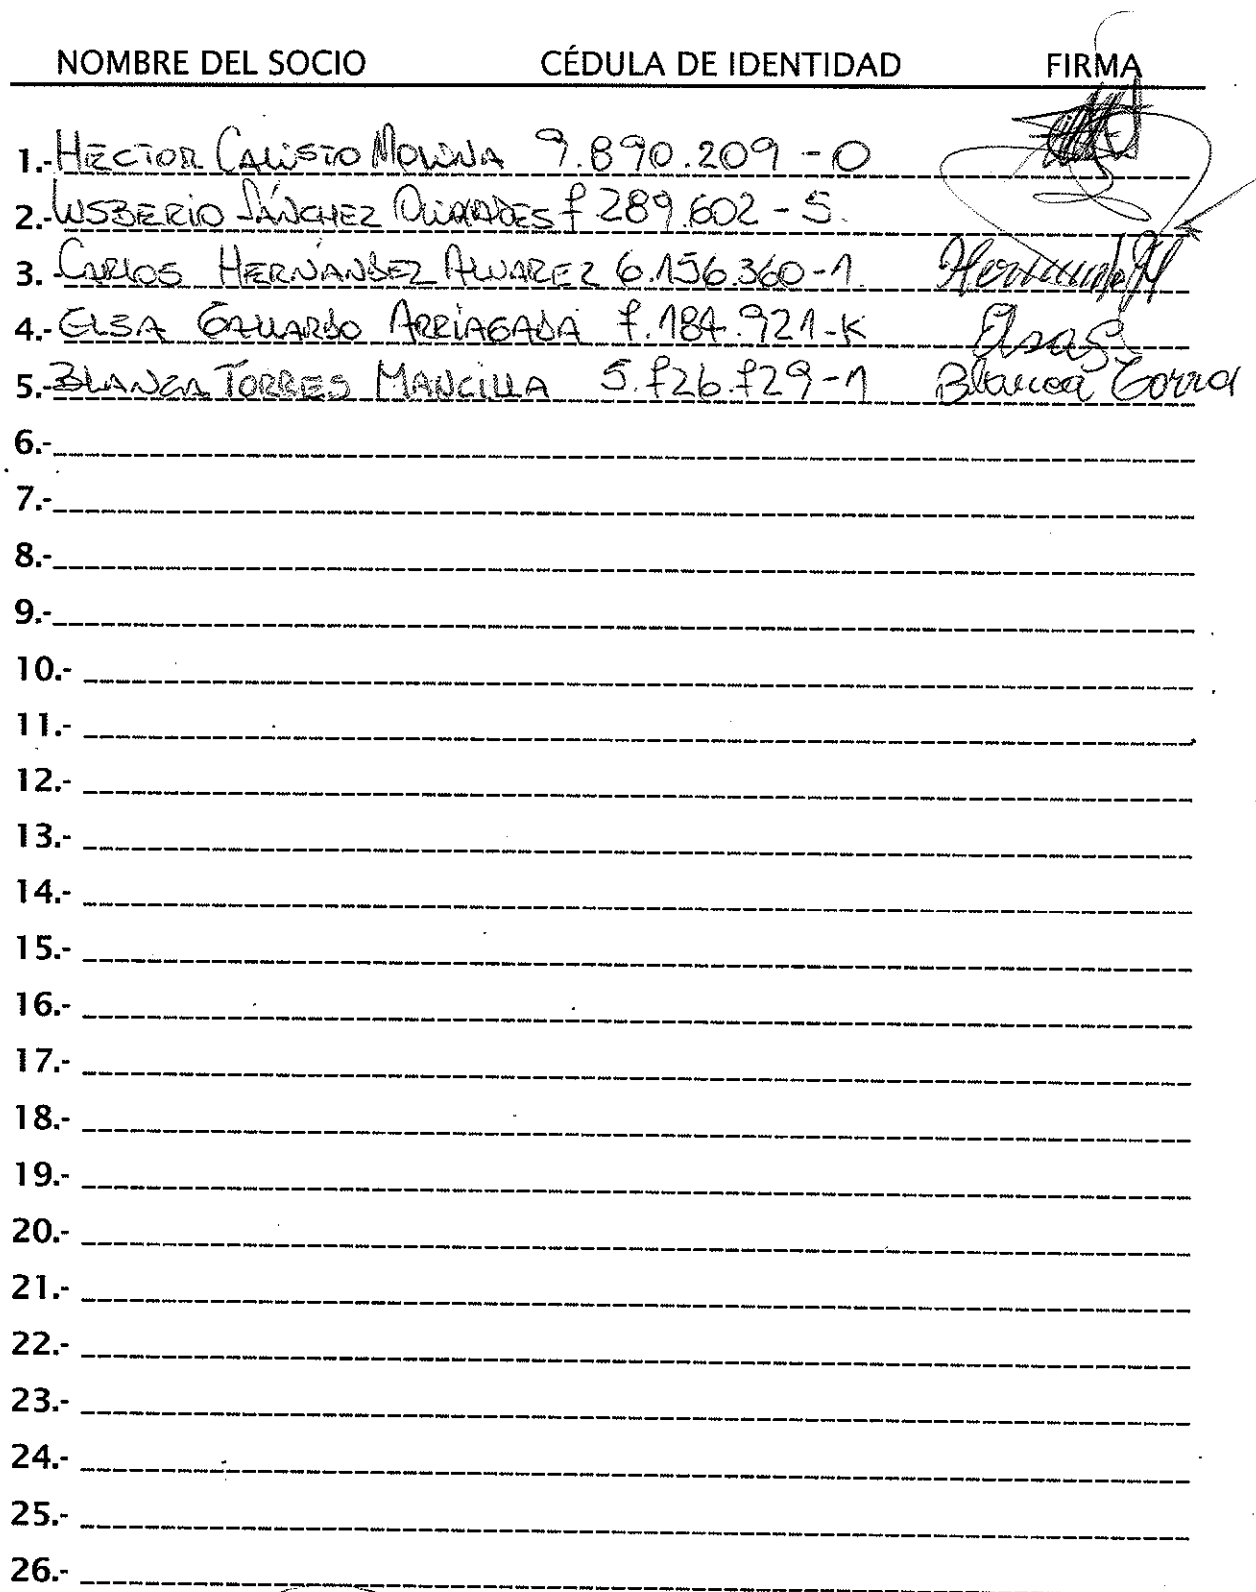 NOMBRE DEL SOCIO CÉDULA DE IDENTIDAD FIRMA
1.- HECTOR CALISTO MOLINA 9.890.209-0
2.- SÁNCHEZ 7.289.602-5.
3. CARLOS HERNÁNDEZ ALVAREZ 6.156.360-1 Hernández
4.- ELSA GALLARDO ARRIAGADA 7.184.921-K Elsa G
5.- BLANCA TORRES MANCILLA 5.726.729-1 Blanca Torres
6.-
7.-
8.-
9.-
10.-
11.-
12.-
13.-
14.-
15.-
16.-
17.-
18.-
19.-
20.-
21.-
22.-
23.-
24.-
25.-
26.-